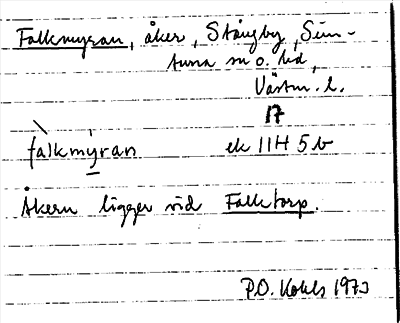 Falkmyran, åker, Stångby, Sim-
tuna sn o. hd,
Västm. l.
17
fàlkmýran ek 11H 5b
Åkern ligger vid Falktorp.
P.O. Kohls 1973